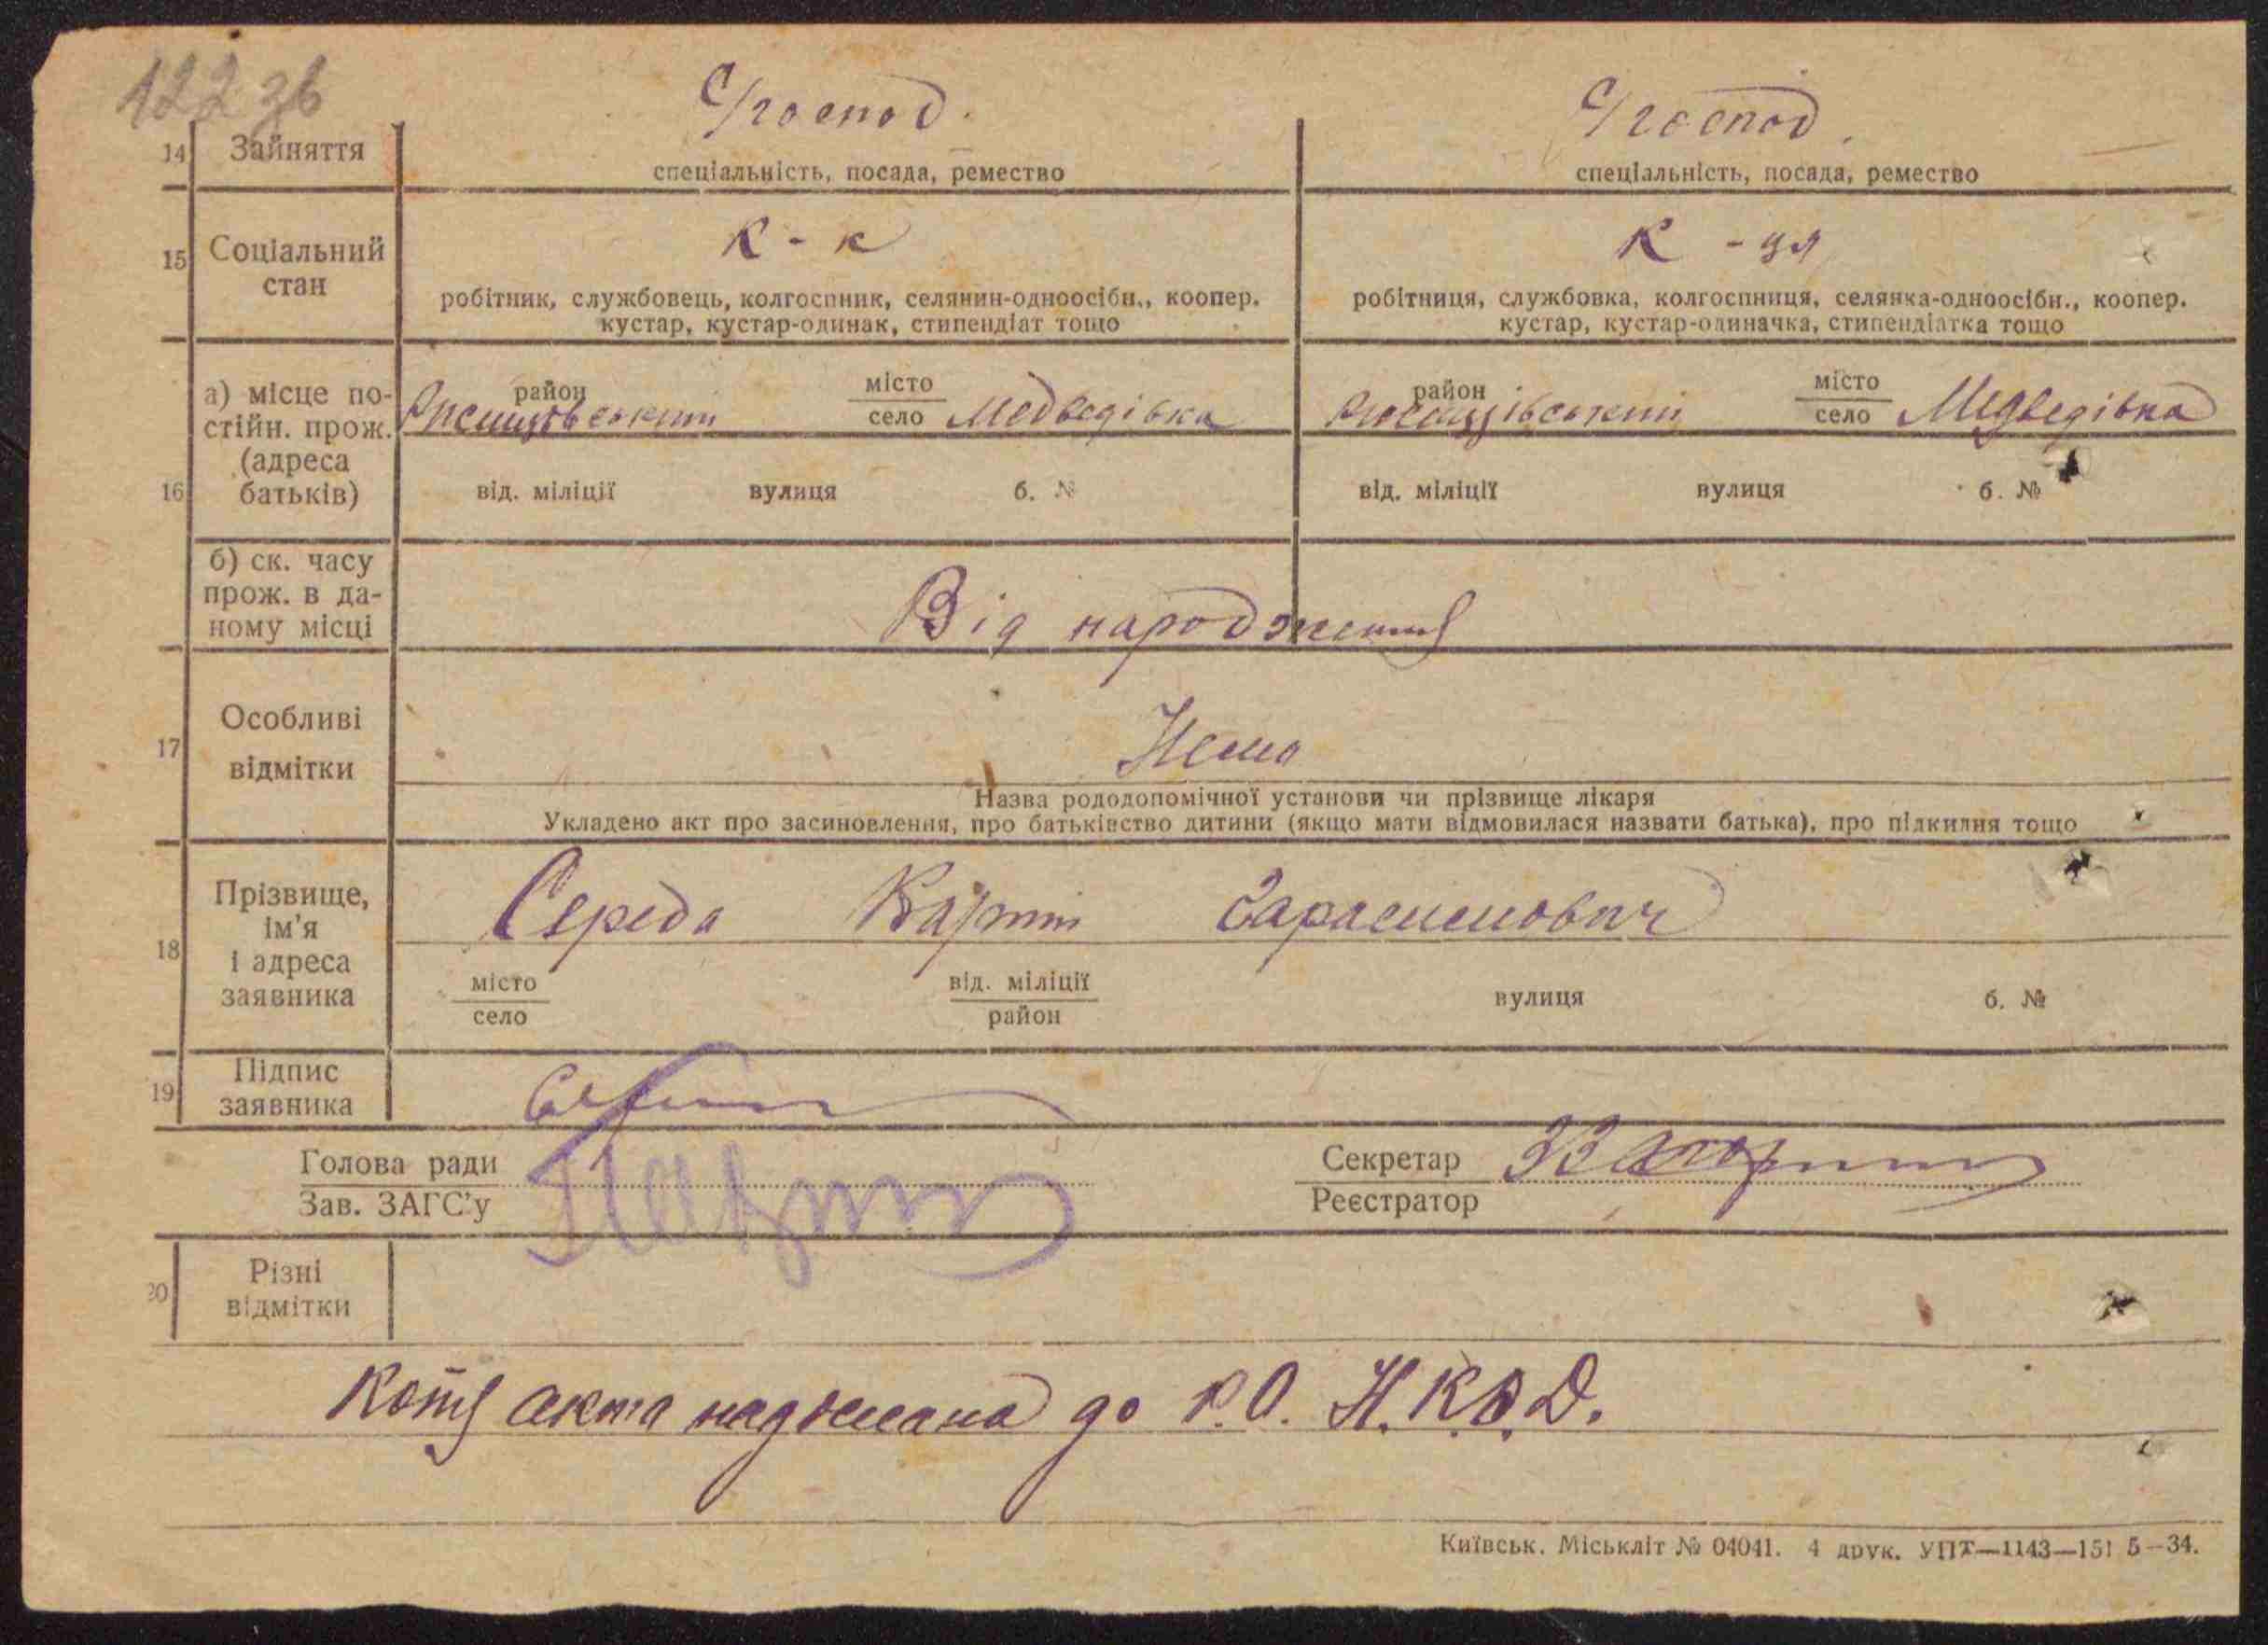 122 зв
С/господ. С/господ.
14 Зайняття спеціальність, посада, ремество спеціальність, посада, ремество
К - к К - ця
15 Соціальний стан
робітник, службовець, колгоспник, селянин-одноосібн., коопер. кустар, кустар-одинак, стипендіат тощо
робітниця, службовка, колгоспниця, селянка-одноосібн., коопер. кустар, кустар-одиначка, стипендіатка тощо
16 а) місце постійн. прож. (адреса батьків)
район місто село Медведівка
район місто село Медведівка
від. міліції вулиця б. № від. міліції вулиця б. №
б) ск. часу прож. в даному місці
Від народження
17 Особливі відмітки
Нема
Назва рододопомічної установи чи прізвище лікаря
Укладено акт про засиновлення, про батьківство дитини (якщо мати відмовилася назвати батька), про підкидня тощо
18 Прізвище, ім'я і адреса заявника
Середа
місто село від. міліції район вулиця б. №
19 Підпис заявника
Голова ради Секретар
Зав. ЗАГС'у Реєстратор
20 Різні відмітки
Копія акта надіслана до Р.О. Н.К.В.Д.
Київськ. Міськліт № 04041. 4 друк. УПТ—1143—151 5—34.